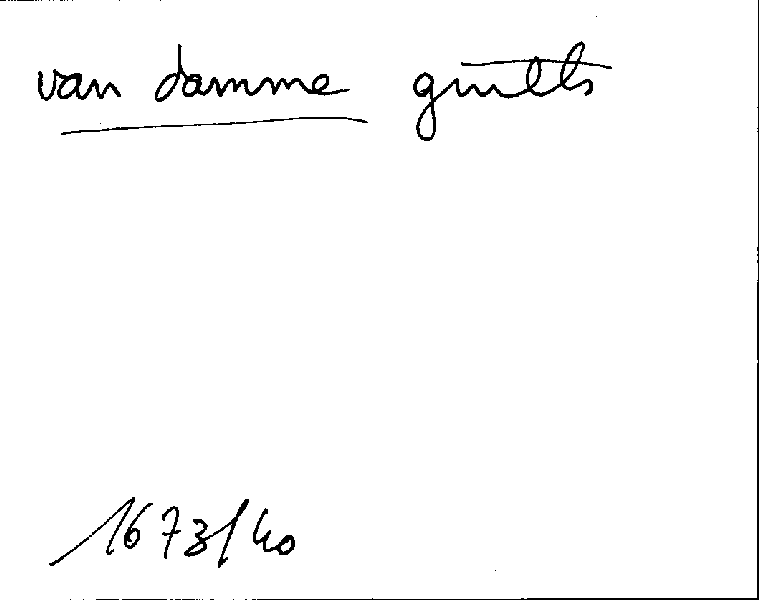 van damme guilts
1673/40